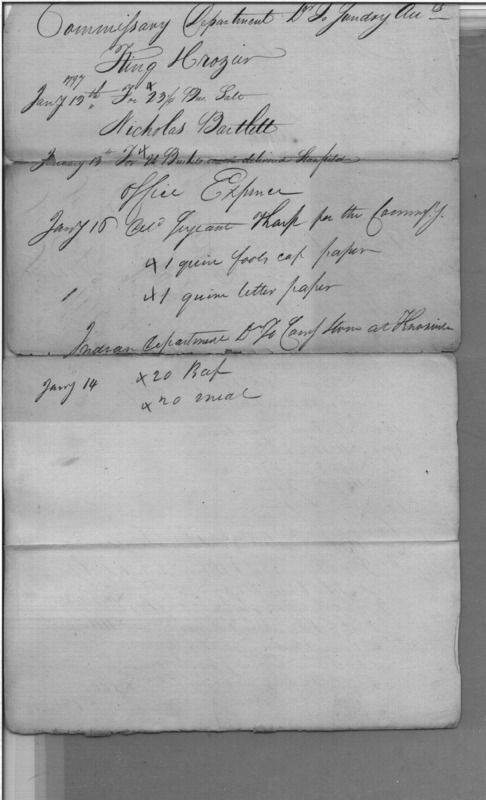 Commissary Department Dr To Sundry Accts
King & Crozier
1797
Jany 12th For x 23 1/2 Bus. Salt
Nicholas Bartlett
January 13th For x 21 Bushels delivered
Office Expence
Jany 16 Del'd Sergeant Tharp for the Commy.
x 1 quire fools cap paper
x 1 quire letter paper
Indian Department Dr To Camp Store at Knoxville
Jany 14 x 20 Beef
x 20 meal